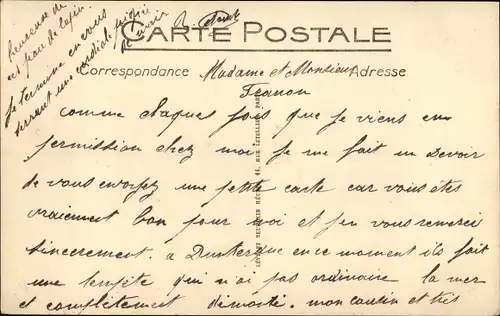 CARTE POSTALE
Correspondance
Adresse
Madame et Monsieur
comme chaques fois que je viens en
permission chez moi je me fait un devoir
de vous envoyez une petite carte car vous êtes
vraiement bon pour moi et j'en vous remerci
sincerement. a Dunkerque en ce moment ils fait
une tempête qui n'ai pas ordinaire la mer
et complètement démonté. mon cousin et très
heureuse de
cet peau de lapin.
je termine en vous
serrant une cordiale poignée
de main
LEVY ET NEURDEIN RÉUNIS, 44, RUE LETELLIER, PARIS